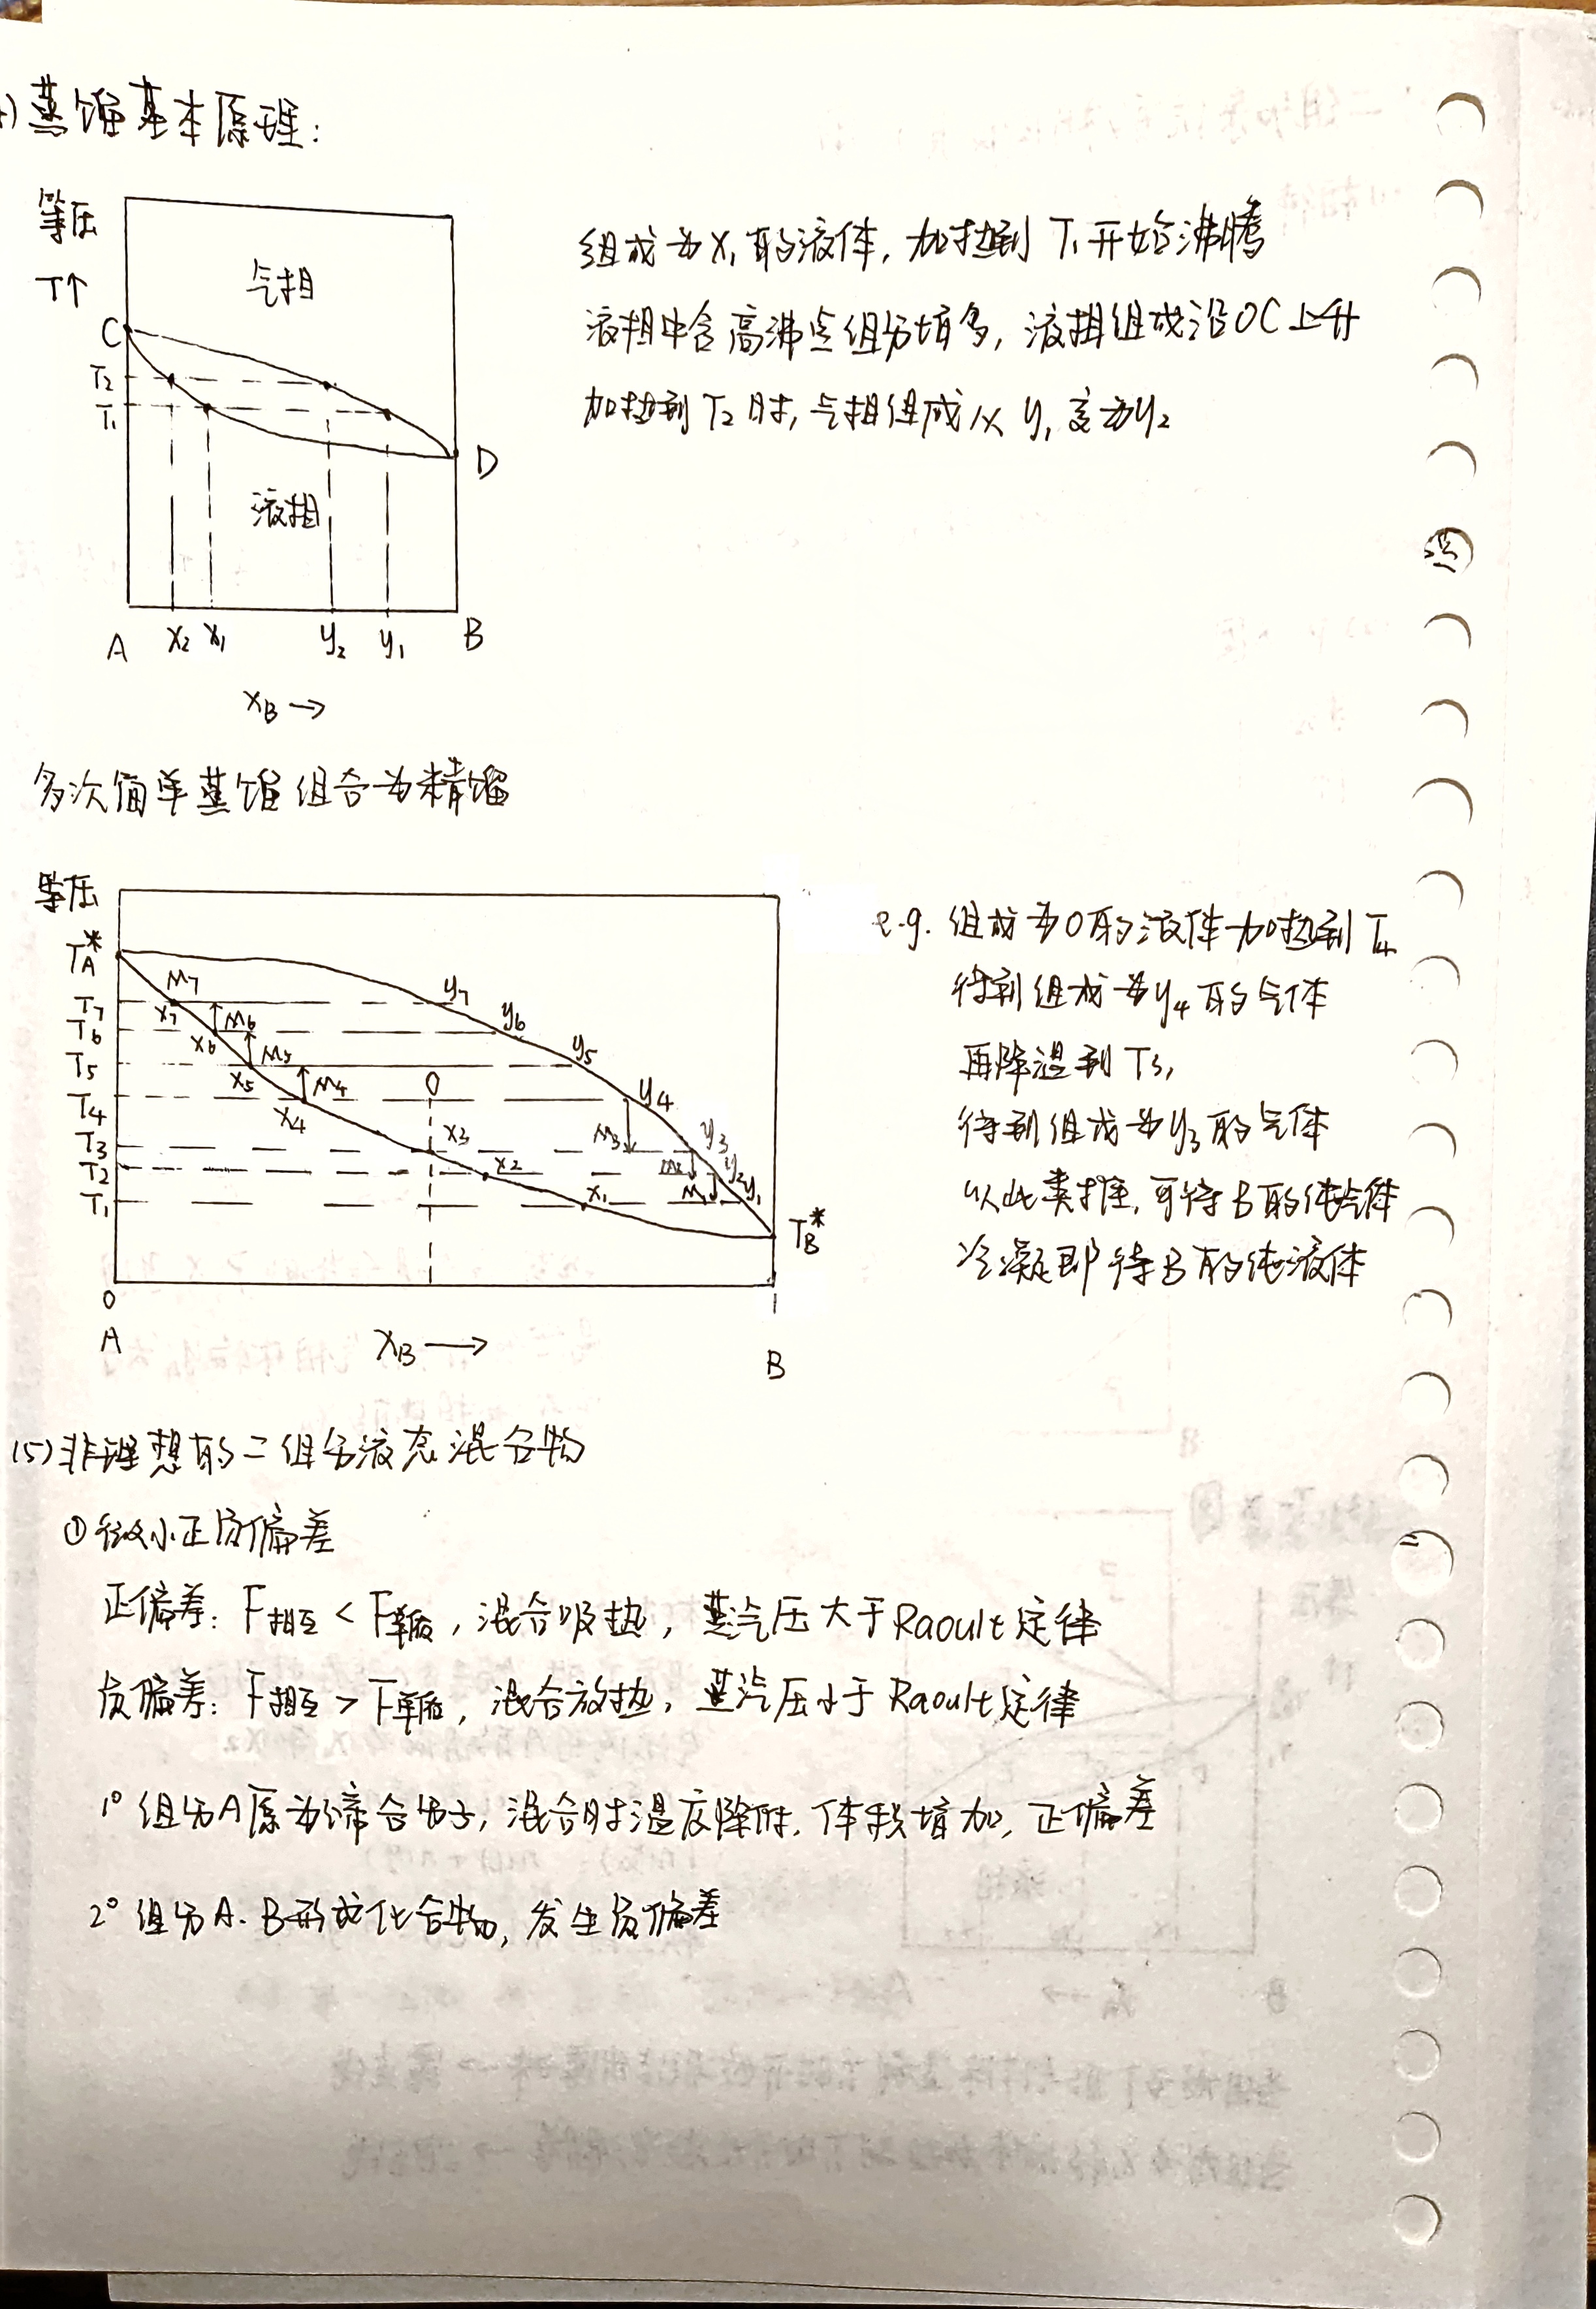 4)蒸馏基本原理:
等压
T↑
气相
C
T₂
T₁
D
液相
A x₂ x₁ y₂ y₁ B
x_B →
组成为x₁的液体,加热到T₁开始沸腾
液相中含高沸点组分增多,液相组成沿OC上升
加热到T₂时,气相组成从y₁变为y₂
多次简单蒸馏组合为精馏
等压
T_A*
T₇
T₆
T₅
T₄
T₃
T₂
T₁
M₇
x₇
M₆
x₆
M₅
x₅
M₄
x₄
O
x₃
x₂
x₁
y₇
y₆
y₅
y₄
M₃
y₃
M₂
y₂
M₁
y₁
T_B*
0
1
A
x_B →
B
e.g. 组成为O的液体加热到T₄
得到组成为y₄的气体
再降温到T₃,
得到组成为y₃的气体
以此类推,可得B的纯气体
冷凝即得B的纯液体
(5)非理想的二组分液态混合物
①微小正负偏差
正偏差:F相互<F单假,混合吸热,蒸气压大于Raoult定律
负偏差:F相互>F单假,混合放热,蒸汽压小于Raoult定律
1°组分A原为缔合分子,混合时温度降低,体积增加,正偏差
2°组分A.B形成化合物,发生负偏差